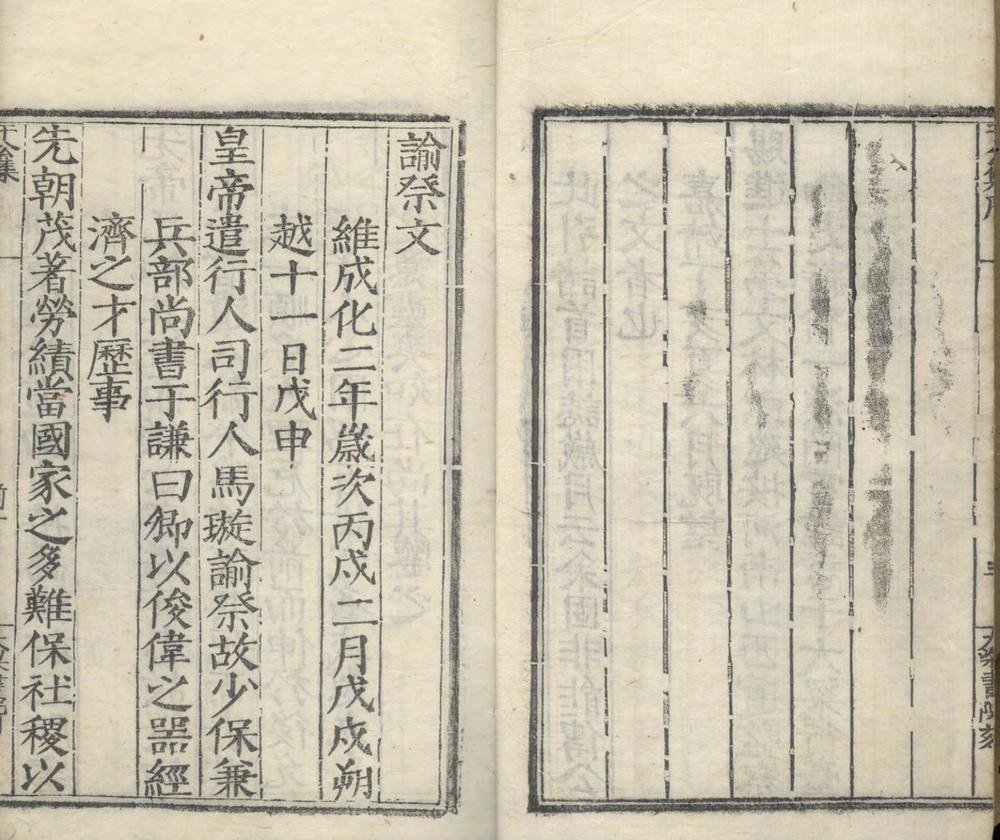 大梁書院刻
諭祭文
維成化二年歲次丙戌二月戊戌朔
越十一日戊申
皇帝遣行人司行人馬璇諭祭故少保兼
兵部尚書于謙曰卿以俊偉之器經
濟之才歷事
先朝茂著勞績當國家之多難保社稷以